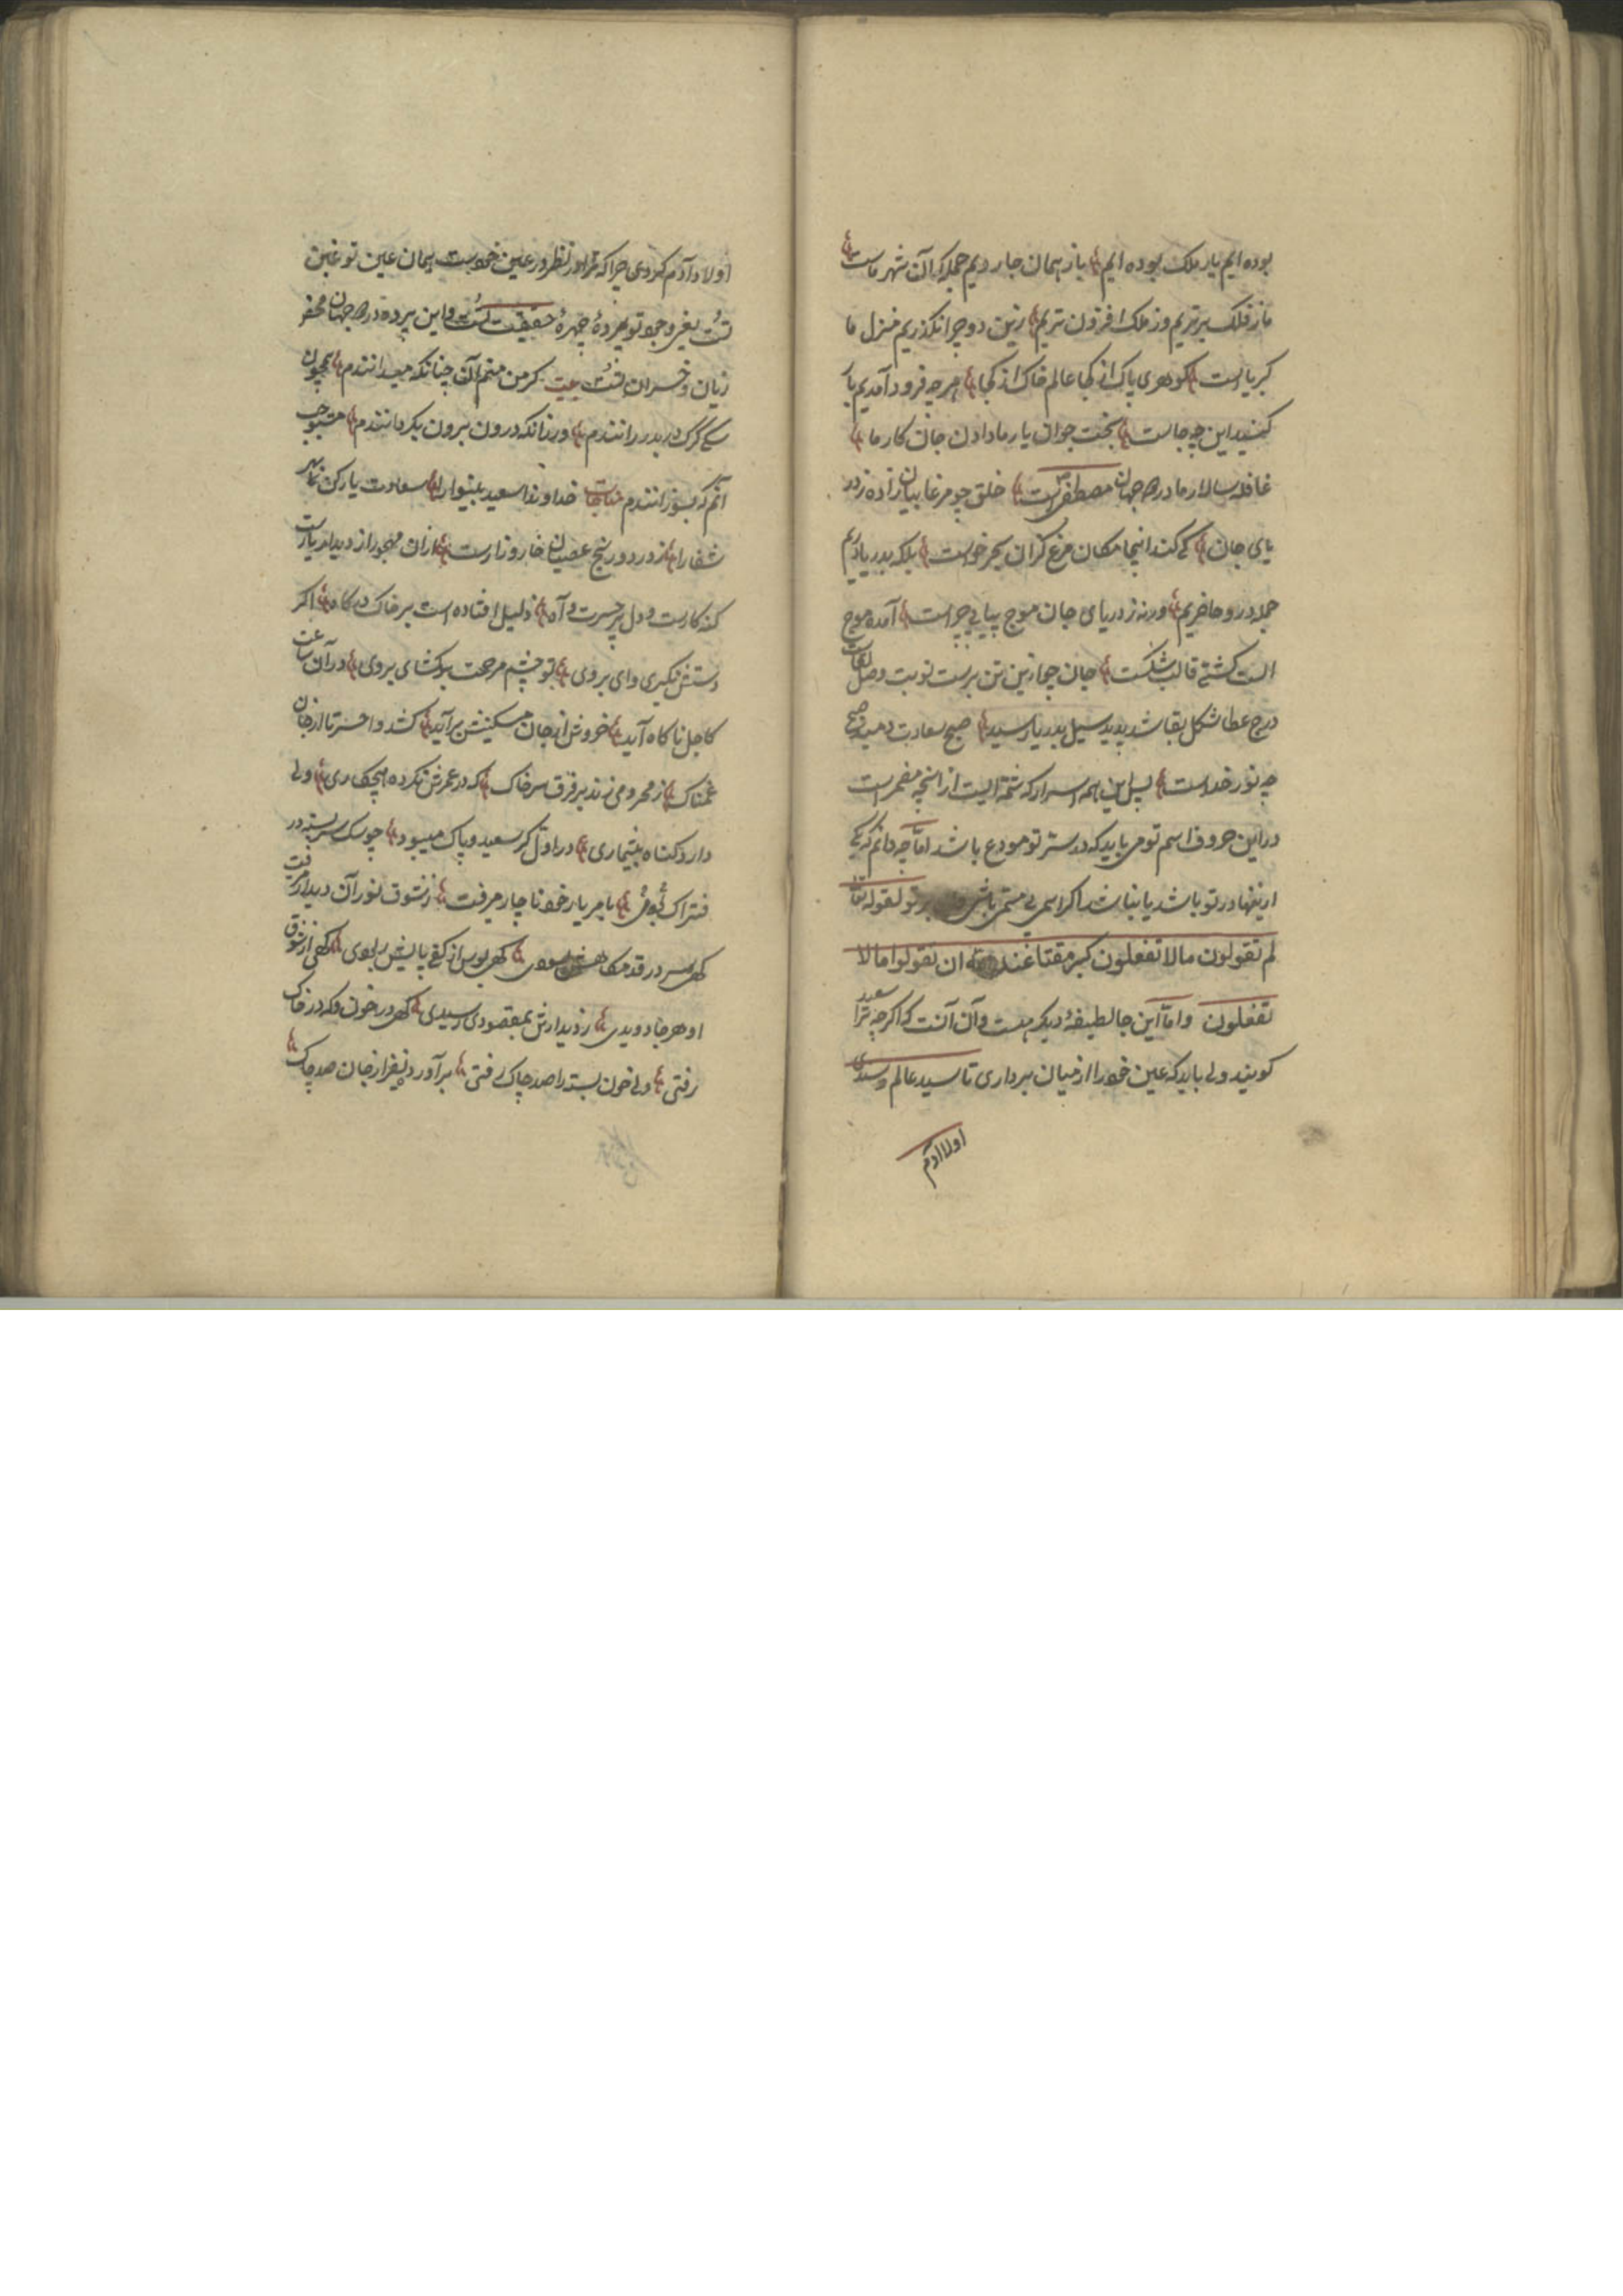 بوده ایم یار ملک بوده ایم باز همان جا رویم جمله که آن شهر ماست
ما ز فلک برتریم وز ملک افزون تریم زین دو چرا نگذریم منزل ما
کبریاست گوهری پاک از کجا عالم خاک از کجا هر چه فرود آمدیم
کنید این چه جاست بخت جوان یار ما دادن جان کار ما
غافله سالار ما در جهان مصطفی است خلق چو مرغابیان زاده ز در
یای جان کی کند اینجا مکان مرغ کزان بحر خواست بلکه بدریا دریم
جمله درو حاضریم ورنه ز دریای جان موج پیاپی چراست آمده موج
الست کشتی قالب شکست جان چو ازین تن برست نوبت وصل لقاست
درج عطا شکل بقا شد پدید سیل بدریا رسید صبح سعادت دمید صبح
چه نور خداست پس این همه اسرار که شمه الیست از آنچه مضمر است
در این حروف اسم تو می باید که در ستر تو مودع باشد اما چه دانم که یکی
ازینها در تو باشد یا نباشد اگر اسمی بی مسمی باشی تو لقوله تعا
لم تقولون مالا تفعلون کبر مقتا عند الله ان تقولوا مالا
تفعلون واما این جا لطیفهٔ دیگر هست وآن آنست که اگر چه ترا سعید
گویند ولی باید که عین خود را از میان برداری تا سید عالم وسندی
اولاد آدم
اولاد آدم گردی چرا که ترا در نظر در عین خودست همان عین تو غین
تست یعنی وجود تو پردهٔ چهرهٔ حقیقت تست واین پرده در جهان محض
زیان وخسران تست بیت گر من منم آن چنانکه میدانندم همچون
سگ گرگ در بدر رانندم ور زانکه درون برون بگردانندم مستوجب
آنم که بسوزانندم مناجات خداوندا سعید بینوا را سعادت یار کن
شفا را ز درد و رنج عصیان خار و زارست ازان مهجور از دیدار یارست
گنه کارست و دل پر حسرت و آه ذلیل افتاده است بر خاک درگاه اگر
دستش نگیری وای بر وی تو چشم مرحمت بگشای بر وی در آن ساعت
کاجل ناگاه آید خروش از جان مسکینش برآید کشد واحسرتا از جان
غمناک ز محرومی زند بر فرق سر خاک که در عمرش نکرده هیچ کاری ولی
دارد گناه بیشماری در اول گر سعید و پاک میبود چو سگ سر بسته در
فتراک میبود با مر یار خود ناچار میرفت ز شوق نور آن دیدار میرفت
گهی سر در قدمگاهش بسودی گهی بوس از کف پایش ربودی گهی از شوق
او هر جا دویدی ز دیدارش بمقصودی رسیدی گهی در خون وگه در خاک
رفتی ولی خون بسته را صد چاک رفتی برآورد نفیر از جان صد چاک